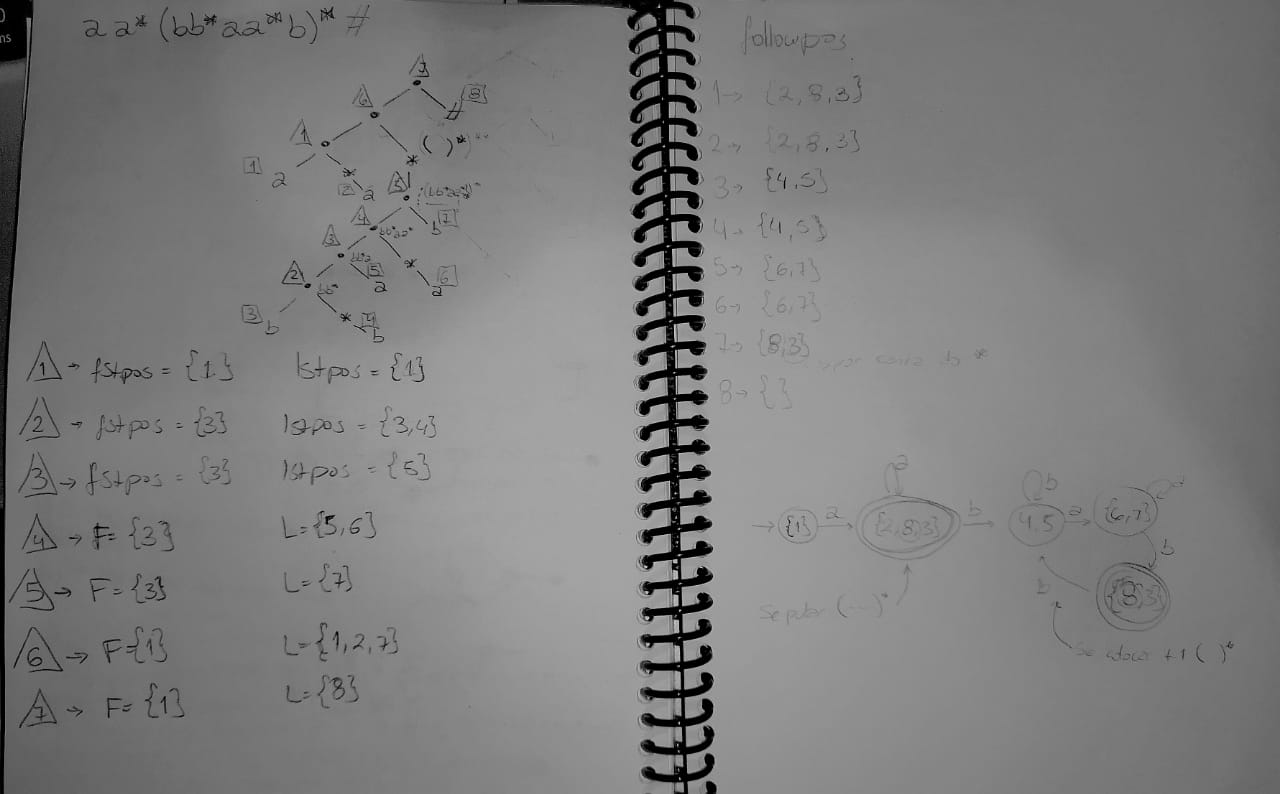 aa*(bb*aa*b)*#
7
8
6
#
1
( )*
1
a
*
*
2
a
5
4
bb*aa*
b
7
3
bb*a
5
a
*
6
a
2
bb*
3
b
*
4
b
1 → fstpos = {1} lstpos = {1}
2 → fstpos = {3} lstpos = {3,4}
3 → fstpos = {3} lstpos = {5}
4 → F = {3} L = {5,6}
5 → F = {3} L = {7}
6 → F = {1} L = {1,2,7}
7 → F = {1} L = {8}
followpos
1 → {2,8,3}
2 → {2,8,3}
3 → {4,5}
4 → {4,5}
5 → {6,7}
6 → {6,7}
7 → {8,3} → por causa do *
8 → { }
a b a
→ {1} a {2,8,3} b 4,5 a {6,7}
b
b {8,3}
Se pular (...)*
Se +1 ( )*